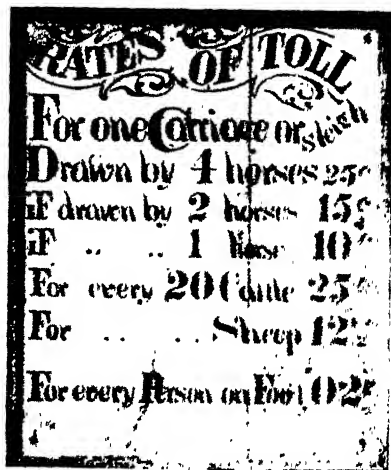 RATES OF TOLL
For one Carriage or sleigh
Drawn by 4 horses 25c
if drawn by 2 horses 15c
iF .. .. 1 Horse 10c
For every 20 Cattle 25c
For .. .. Sheep 12½
For every Person on Foot 02c